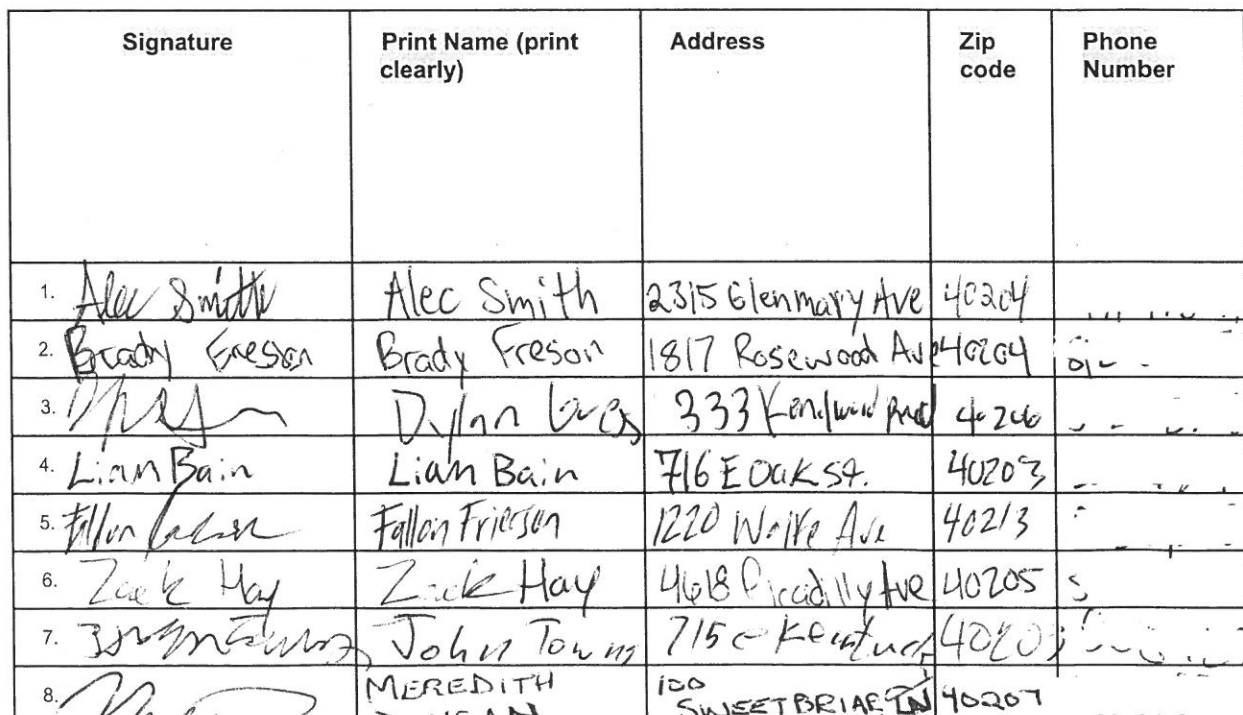 Signature Print Name (print Address Zip Phone
clearly) code Number
1. Alec Smith Alec Smith 2315 Glenmary Ave 40204
2. Brady Freson Brady Freson 1817 Rosewood Ave 40204
3. Dylan 333 40206
4. Liam Bain Liam Bain 716 E Oak St. 40203
5. Fallon Fallon Frierson 1220 Wolfe Ave 40213
6. Zack Hay Zack Hay 4618 Picadilly Ave 40205
7. John Towns 715 E Kentuck 40203
8. MEREDITH 100
SWEETBRIAR LN 40207